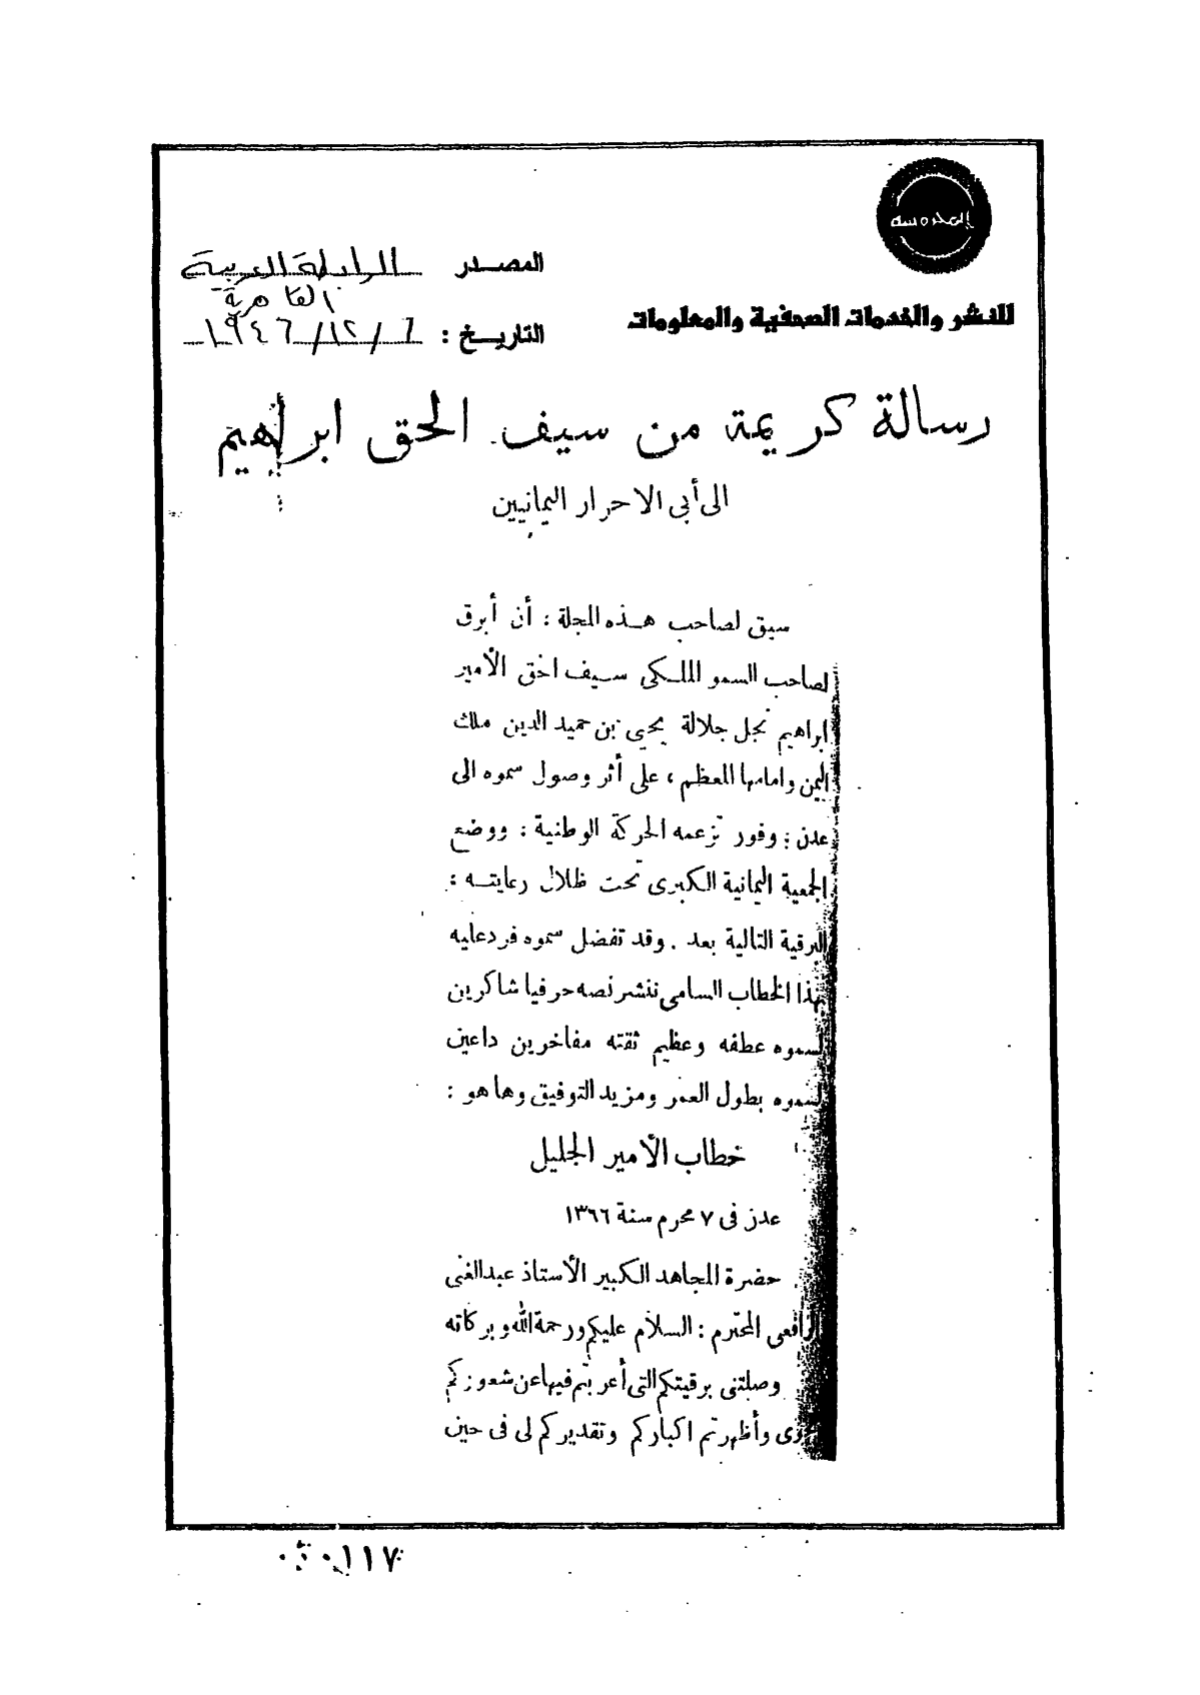 المحروسة
للنشر والخدمات الصحفية والمعلومات
المصدر الرابطة العربية
القاهرة
التاريخ : ٦ / ١٢ / ١٩٤٦
رسالة كريمة من سيف الحق ابراهيم
الى أبى الاحرار اليمانيين
سبق لصاحب هذه المجلة : أن أبرق
لصاحب السمو الملكى سيف الحق الأمير
ابراهيم نجل جلالة يحيى بن حميد الدين ملك
اليمن وامامها المعظم ، على أثر وصول سموه الى
عدن : وفور تزعمه الحركة الوطنية : ووضع
الجمعية اليمانية الكبرى تحت ظلال رعايته :
البرقية التالية بعد . وقد تفضل سموه فرد عليه
بهذا الخطاب السامى ننشر نصه حرفيا شاكرين
لسموه عطفه وعظيم ثقته مفاخرين داعين
لسموه بطول العمر ومزيد التوفيق وها هو :
خطاب الأمير الجليل
عدن فى ٧ محرم سنة ١٣٦٦
حضرة المجاهد الكبير الأستاذ عبد الغنى
الرافعى المحترم : السلام عليكم ورحمة الله وبركاته
وصلتنى برقيتكم التى أعربتم فيها عن شعوركم
وأظهرتم اكباركم وتقديركم لى فى حين